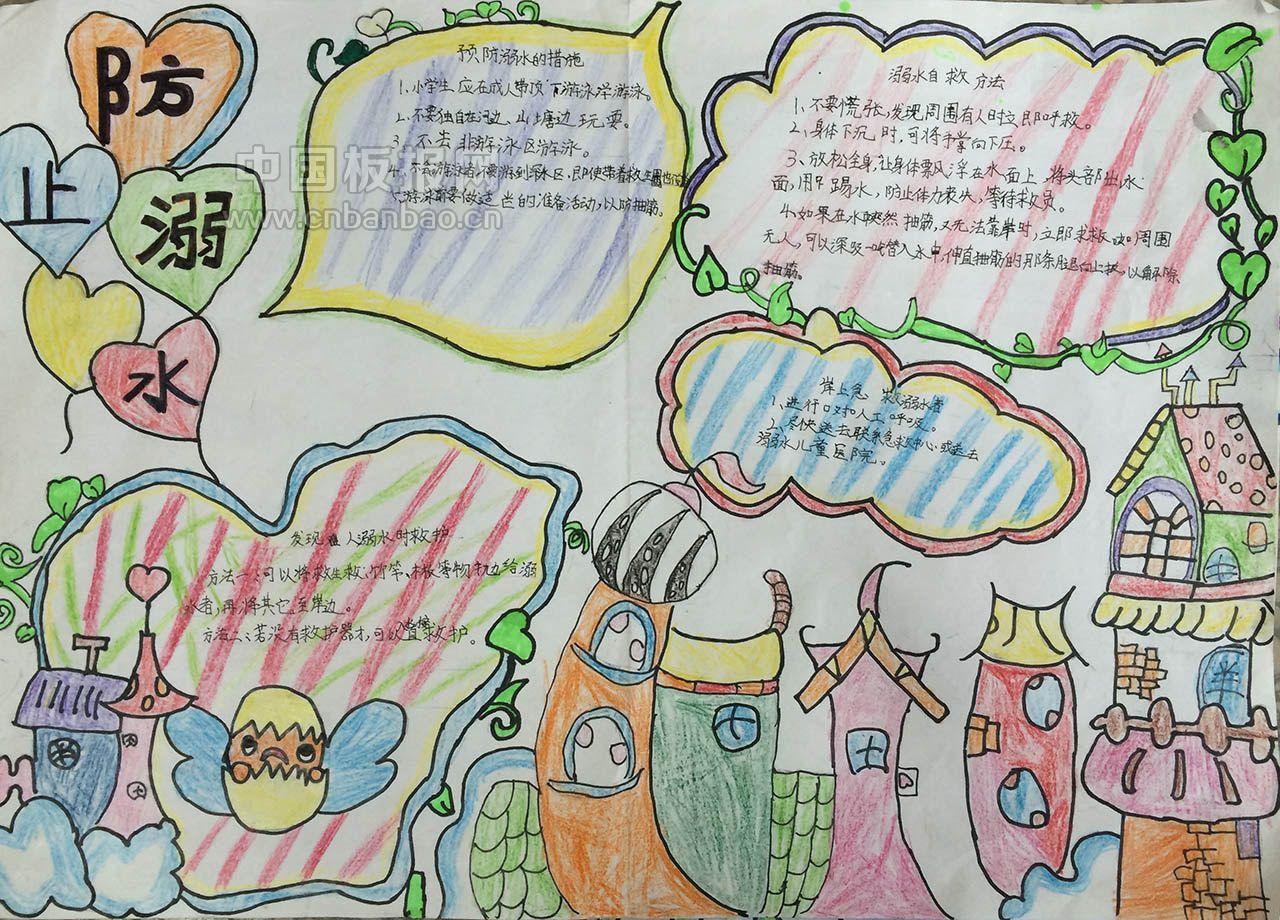 防
止
溺
水
预防溺水的措施
1、小学生应在成人带顶下游泳学游泳。
2、不要独自在河边、山塘边玩耍。
3、不去非游泳区游泳。
不会游泳者,不要游到深水区,即使带着救生圈也
游泳前要做适当的准备活动,以防抽筋。
溺水自救方法
1、不要慌张,发现周围有人时立即呼救。
2、身体下沉时,可将手掌向下压。
3、放松全身,让身体飘浮在水面上,将头部出水
面,用脚踢水,防止体力丧失,等待救员。
4、如果在水映然抽筋,又无法靠岸时,立即求救如周围
无人,可以深吸一口气潜入水中,伸直抽筋的那条腿向上扳,以解除
抽筋。
岸上急救溺水者
1、进行口对口人工呼吸。
2、尽快送去联系急救中心或送去
溺水儿童医院。
发现人溺水时救护
方法一:可以将救生救、竹竿、木板等物扔边给溺
水者,再将其它至岸边。
方法二:若没有救护器才,可以入直接救护。
中国板报网
www.cnbanbao.cn